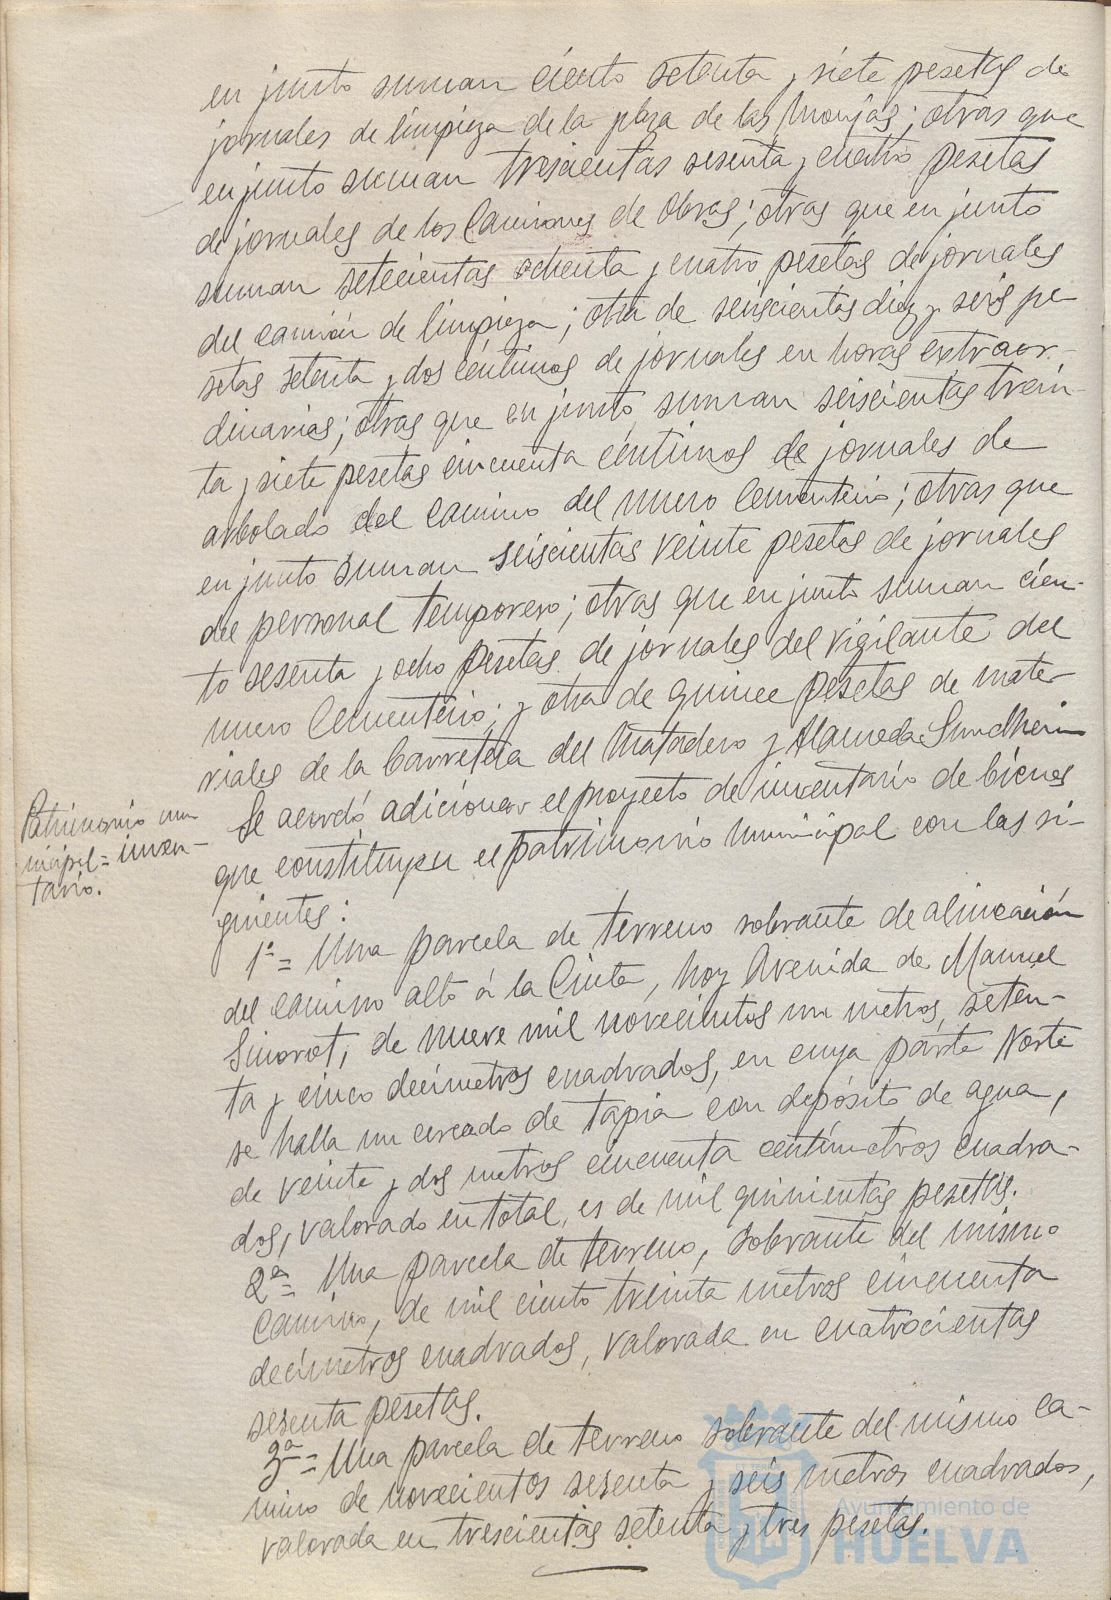 en junto suman ciento setenta y siete pesetas de
jornales de limpieza de la plaza de las Monjas; otras que
en junto suman trescientas sesenta y cuatro pesetas
de jornales de los Camiones de Obras; otras que en junto
suman setecientas ochenta y cuatro pesetas de jornales
del camión de limpieza; otra de seiscientas diez y seis pe
setas setenta y dos céntimos de jornales en horas extraor-
dinarias; otras que en junto suman seiscientas trein-
ta y siete pesetas cincuenta céntimos de jornales de
arbolado del camino del nuevo Cementerio; otras que
en junto suman seiscientas veinte pesetas de jornales
del personal temporero; otras que en junto suman cien-
to sesenta y ocho pesetas de jornales del vigilante del
nuevo Cementerio; y otra de quince pesetas de mate-
riales de la Carretera del Matadero y Alameda Sundheim
Patrimonio mu
nicipal = inven-
tario.
Se acordó adicionar el proyecto de inventario de bienes
que constituyen el patrimonio municipal con las si-
guientes:
1ª = Una parcela de terreno sobrante de alineación
del camino alto á la Cinta, hoy Avenida de Manuel
Siurot, de nueve mil novecientos un metros, seten-
ta y cinco decímetros cuadrados, en cuya parte Norte
se halla un cercado de tapia con depósito de agua,
de veinte y dos metros cincuenta centímetros cuadra-
dos, valorado en total, es de mil quinientas pesetas.
2ª = Una parcela de terreno, sobrante del mismo
Camino, de mil ciento treinta metros cincuenta
decímetros cuadrados, valorada en cuatrocientas
sesenta pesetas.
3ª = Una parcela de terreno sobrante del mismo ca-
mino de novecientos sesenta y seis metros cuadrados,
valorada en trescientas setenta y tres pesetas.
Ayuntamiento de
HUELVA